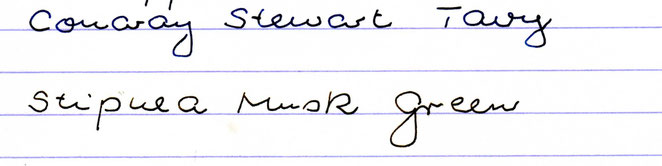 Conway Stewart Tavy
Stipula Musk Green